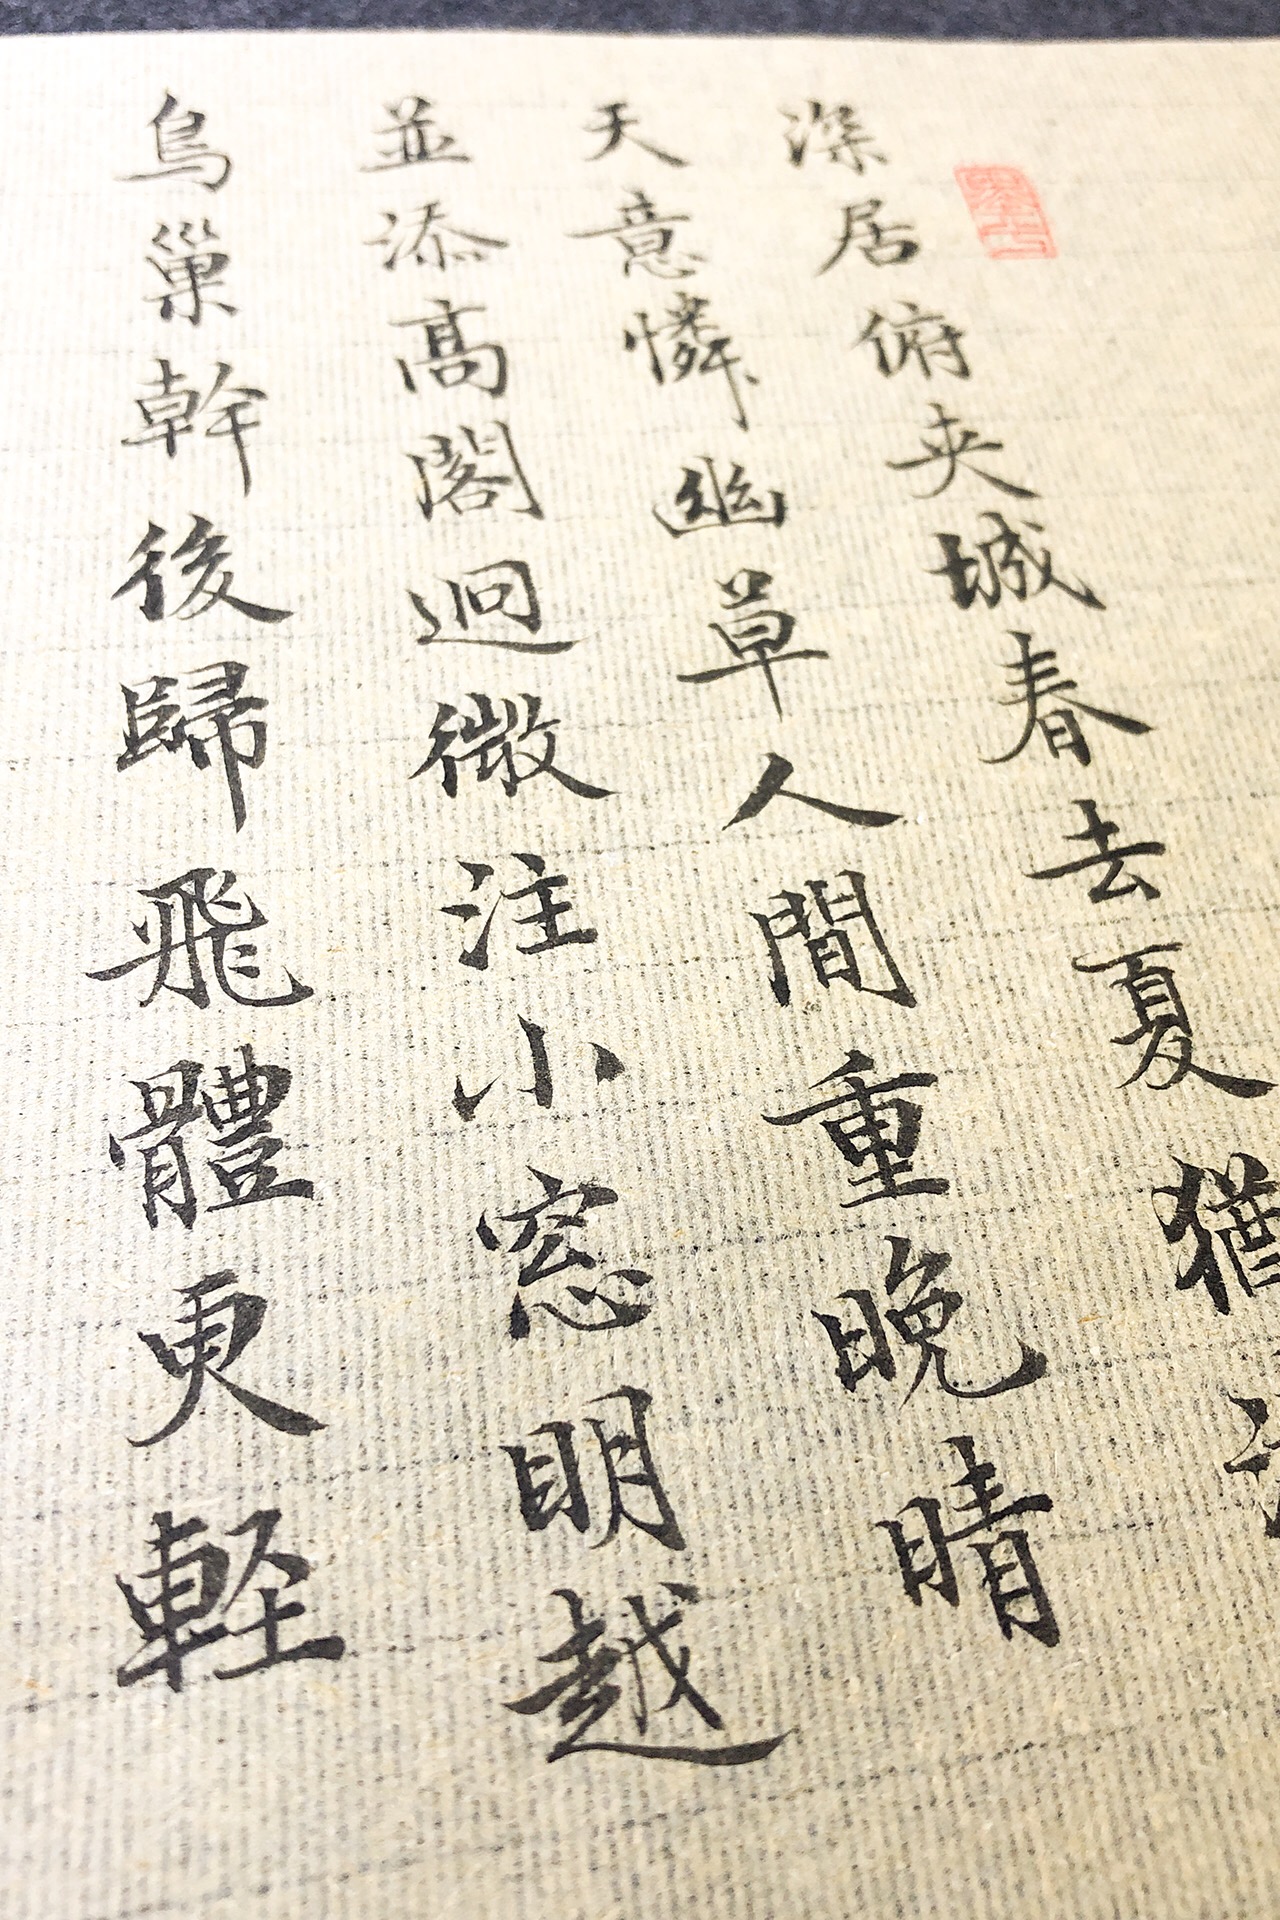 深居俯夾城春去夏猶清
天意憐幽草人間重晚晴
並添高閣迥微注小窓明越
鳥巢幹後歸飛體更輕